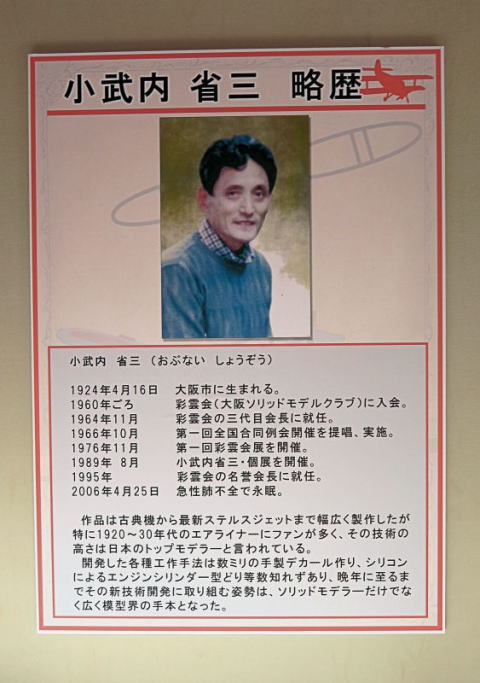 小武内 省三 略歴
小武内 省三 (おぶない しょうぞう)
1924年4月16日 大阪市に生まれる。
1960年ごろ 彩雲会(大阪ソリッドモデルクラブ)に入会。
1964年11月 彩雲会の三代目会長に就任。
1966年10月 第一回全国合同例会開催を提唱、実施。
1976年11月 第一回彩雲会展を開催。
1989年 8月 小武内省三・個展を開催。
1995年 彩雲会の名誉会長に就任。
2006年4月25日 急性肺不全で永眠。
作品は古典機から最新ステルスジェットまで幅広く製作したが
特に1920~30年代のエアライナーにファンが多く、その技術の
高さは日本のトップモデラーと言われている。
開発した各種工作手法は数ミリの手製デカール作り、シリコン
によるエンジンシリンダー型どり等数知れずあり、晩年に至るま
でその新技術開発に取り組む姿勢は、ソリッドモデラーだけでな
く広く模型界の手本となった。